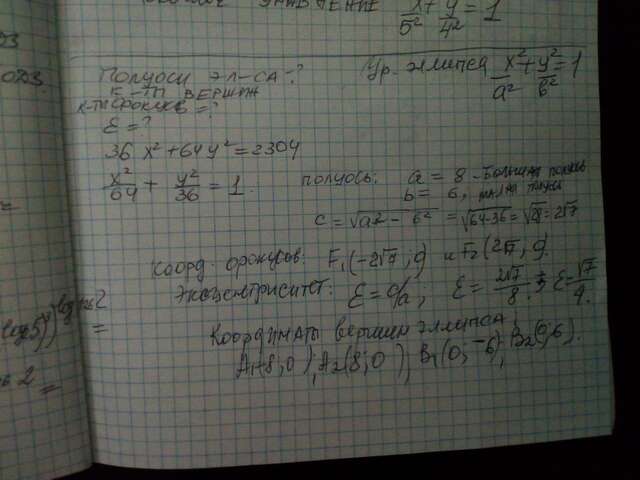 x + y = 1
5² 4²
ОДЗ
Полуоси эл-са-?
Ур. эллипса x²/a² + y²/b² = 1
К-ты вершин
К-ты фокусов = ?
ε = ?
36 x² + 64 y² = 2304
x²/64 + y²/36 = 1.
полуось: a = 8 - большая полуось
b = 6, малая полуось
c = √a2 - b² = √64-36 = √28 = 2√7
Коорд. фокусов: F₁(-2√7; 0) и F₂(2√7; 0).
Эксцентриситет: ε = c/a; ε = 2√7/8 ; ε = √7/4.
Координаты вершин эллипса
A₁(-8; 0); A₂(8; 0); B₁(0; -6); B₂(0; 6).
=
2 =